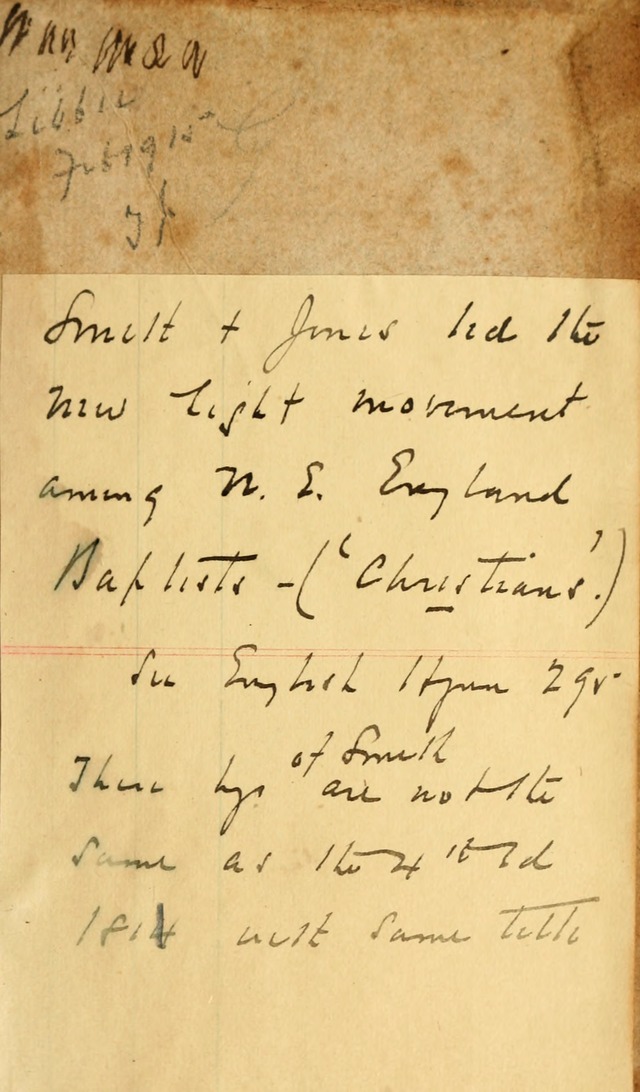 Libbie
Feb 1915
Smith + Jones led the
new light movement
among N. E. England
Baptists - ('Christians'.)
See English Hymn 295
of Smith
These hys are not the
same as the 4th Ed
1814 with same title